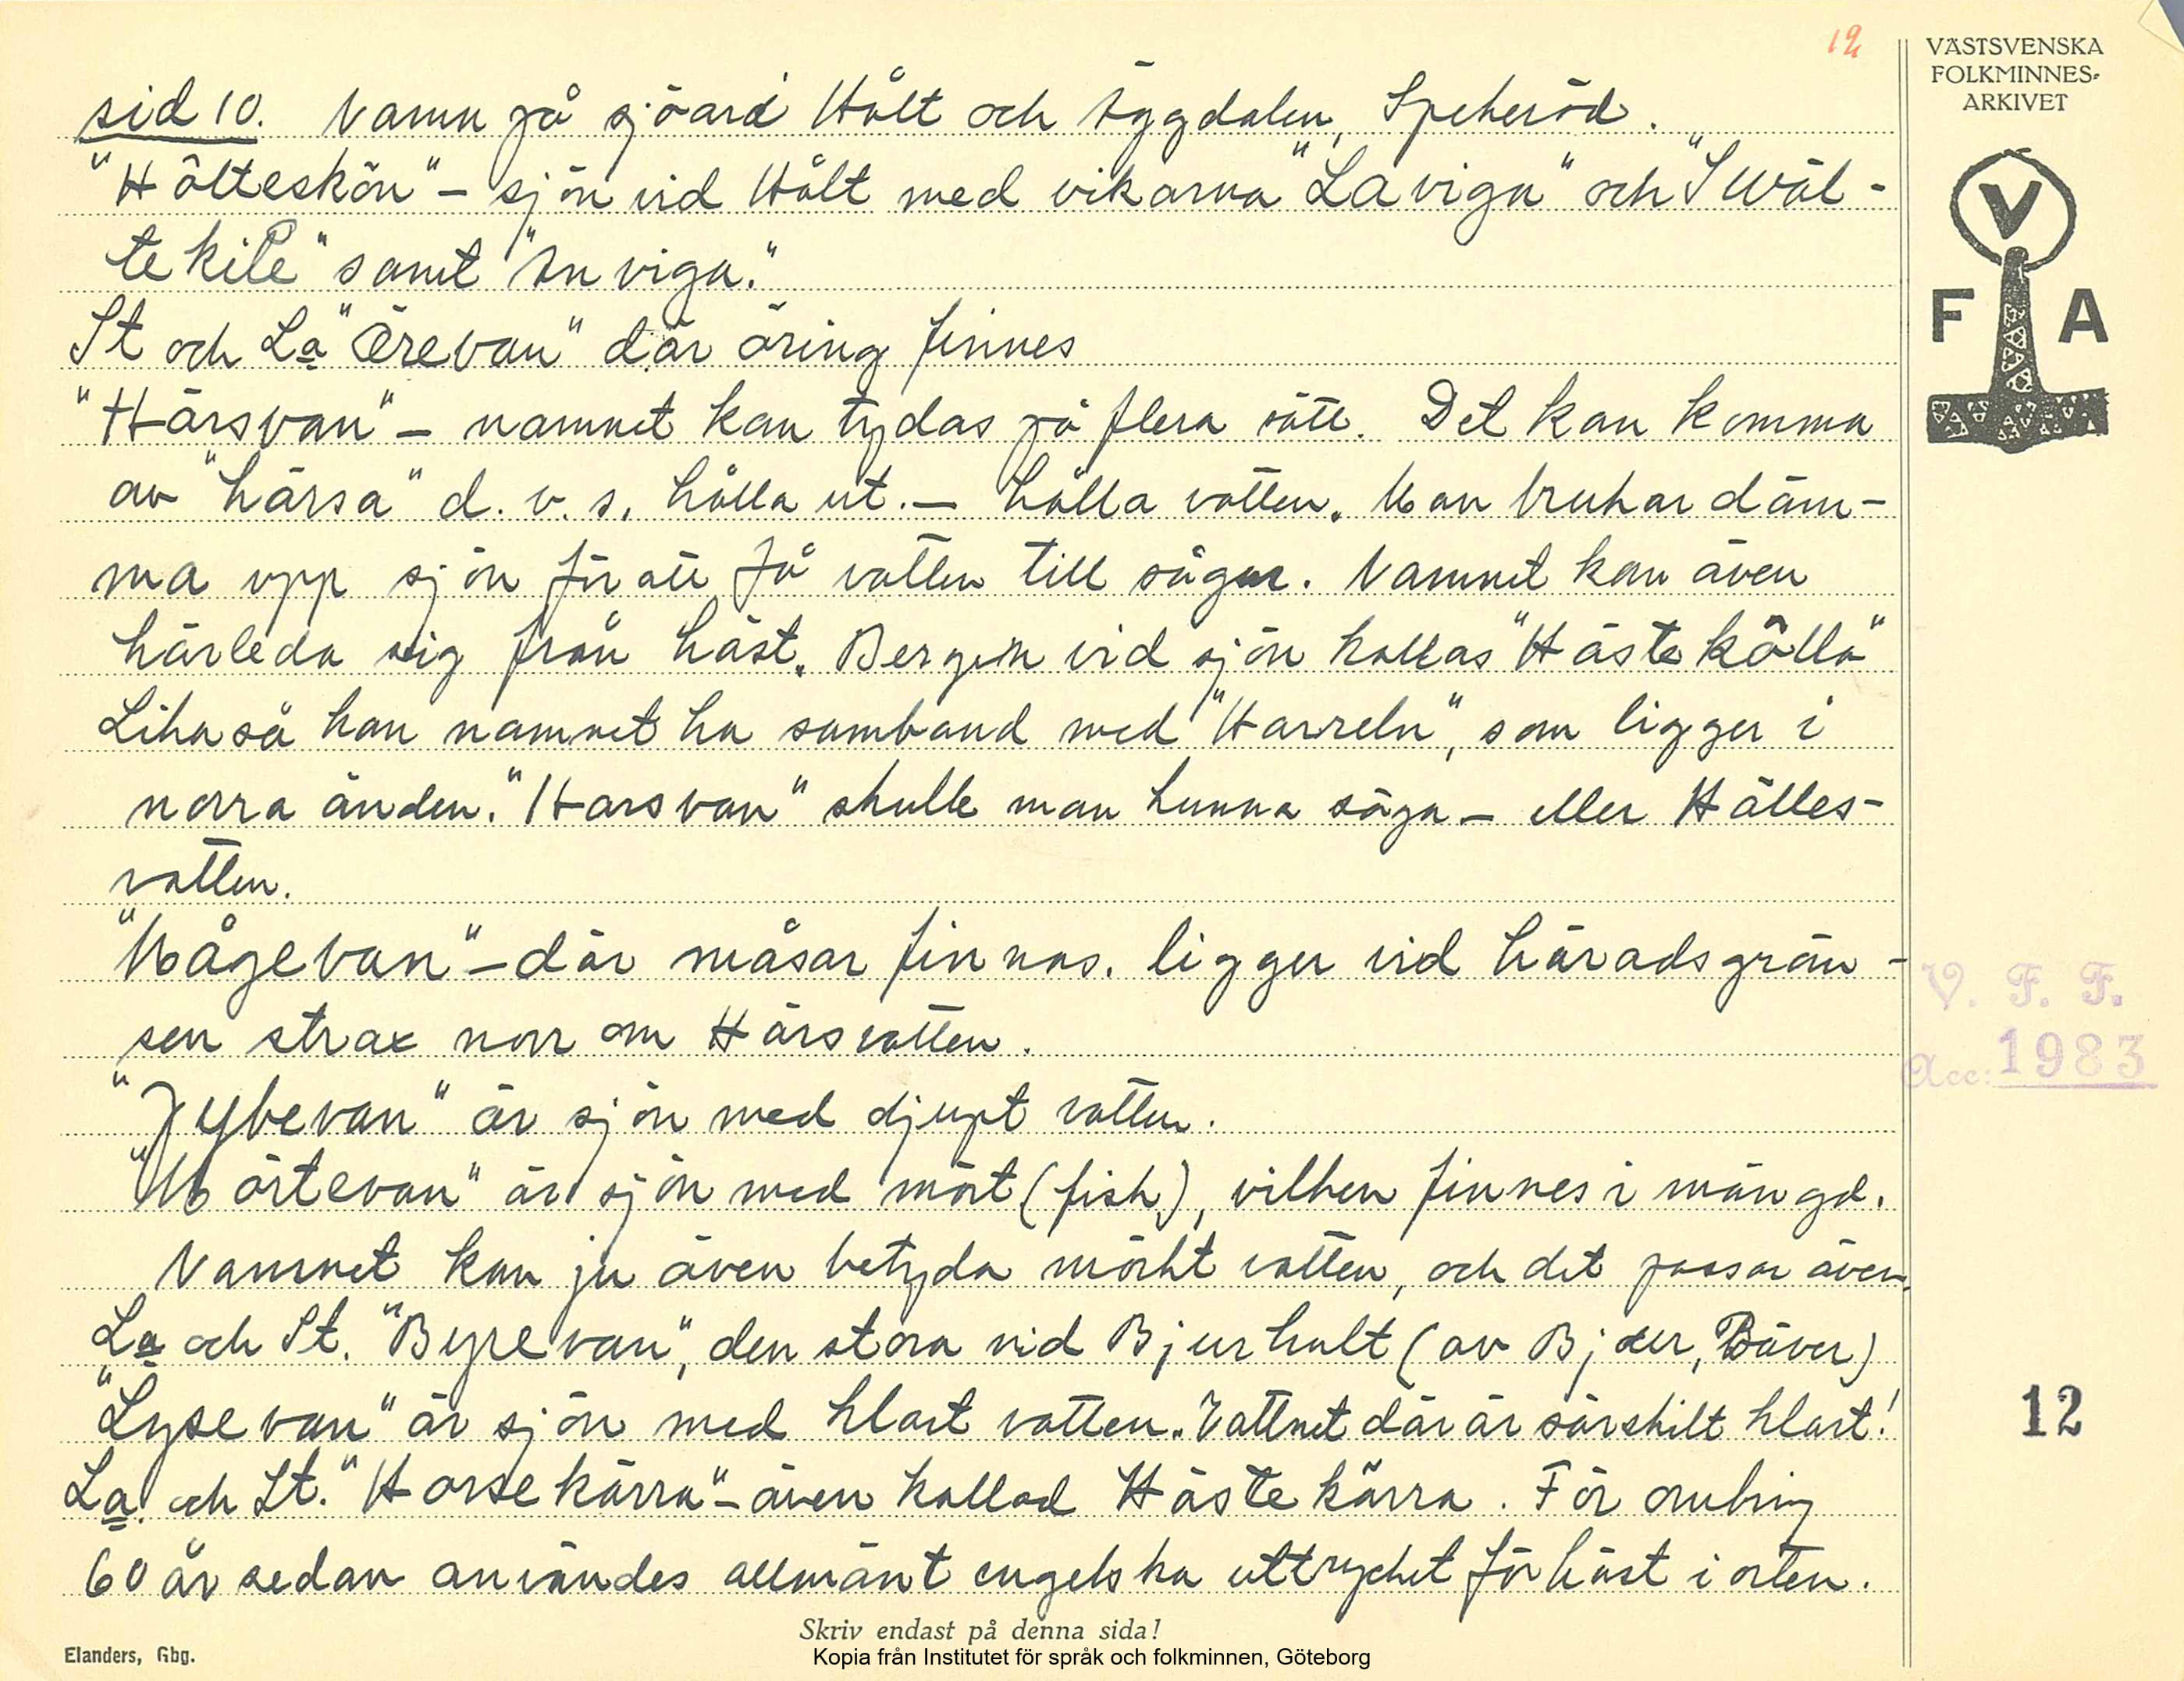 12
VÄSTSVENSKA
FOLKMINNES-
ARKIVET
sid 10. Namn på sjöar i Hålt och Äggdalen, Spekeröd.
"Hôlteskön" – sjön vid Hålt med vikarna "La viga" och "Swäl-
tekile" samt "An viga."
St och La "Örevan" där öring finnes
"Härsvan" – namnet kan tydas på flera sätt. Det kan komma
av "härsa" d. v. s. hålla ut. – hålla vatten. Man brukar däm-
ma upp sjön för att få vatten till sågar. Namnet kan även
härleda sig från häst. Bergen vid sjön kallas "Hästekôlla"
Likaså kan namnet ha samband med "Harreln", som ligger i
norra änden. "Harsvan" skulle man kunna säga – eller Hälles-
vatten.
"Mågevan" – där måsar finnas. ligger vid häradsgrän-
sen strax norr om Härsvatten.
"Jybevan" är sjön med djupt vatten.
"Mörtevan" är sjön med mört (fisk), vilken finnes i mängd.
Namnet kan ju även betyda mörkt vatten, och det passar även.
La och St. "Byrevan", den stora vid Bjurhult (av Bjur, Bäver)
"Lysevan" är sjön med klart vatten. Vattnet där är särskilt klart!
La. och St. "Horsekärra" – även kallad Hästekärra. För omkring
60 år sedan användes allmänt engelska uttrycket för häst i orten.
V
F A
V. F. F.
Acc: 1983
12
Skriv endast på denna sida!
Elanders, Gbg.
Kopia från Institutet för språk och folkminnen, Göteborg